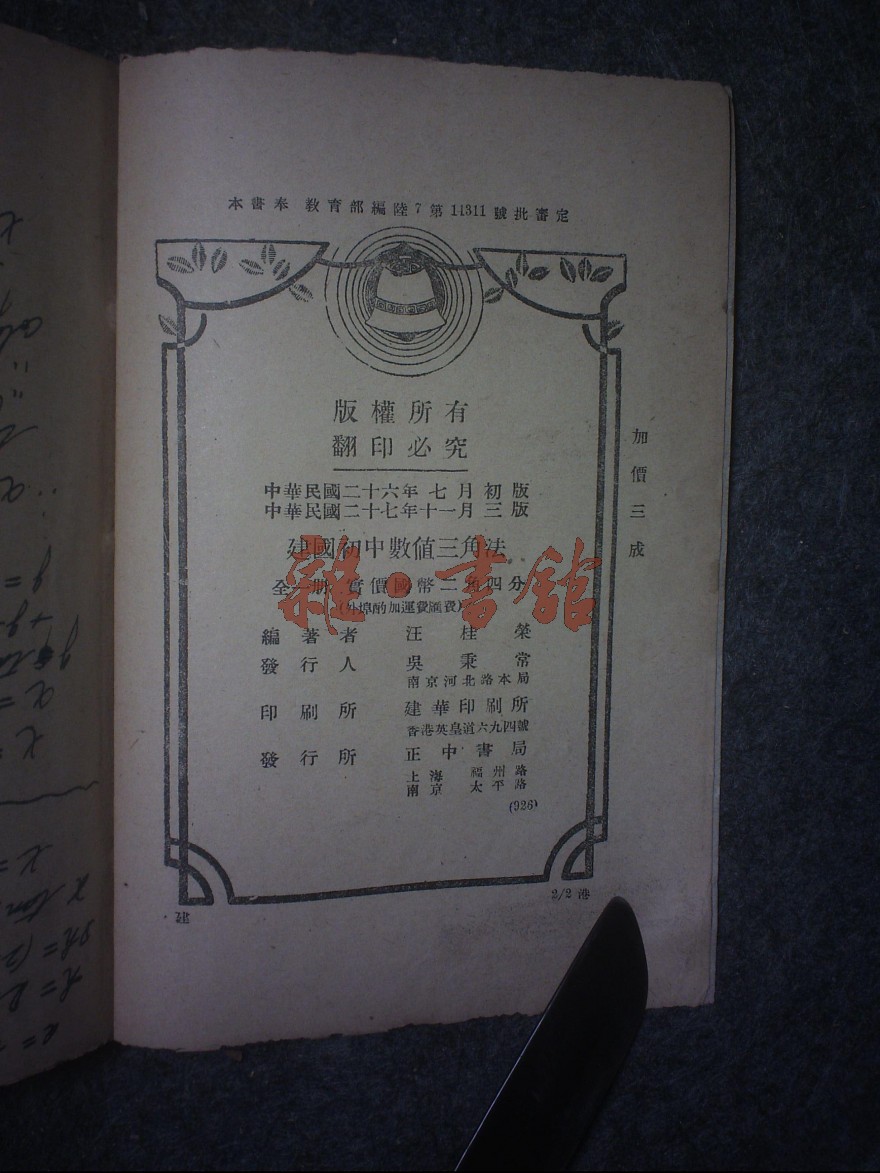 本書奉 教育部編陸7第11311號批審定
版權所有
翻印必究
中華民國二十六年七月初版
中華民國二十七年十一月三版
建國初中數值三角法
全一冊 實價國幣二角四分
(外埠酌加運費匯費)
編著者 汪桂榮
發行人 吳秉常
南京河北路本局
印刷所 建華印刷所
香港英皇道六九四號
發行所 正中書局
上海 福州路
南京 太平路
(926)
建
2/2 港
加價三成
雜·書館